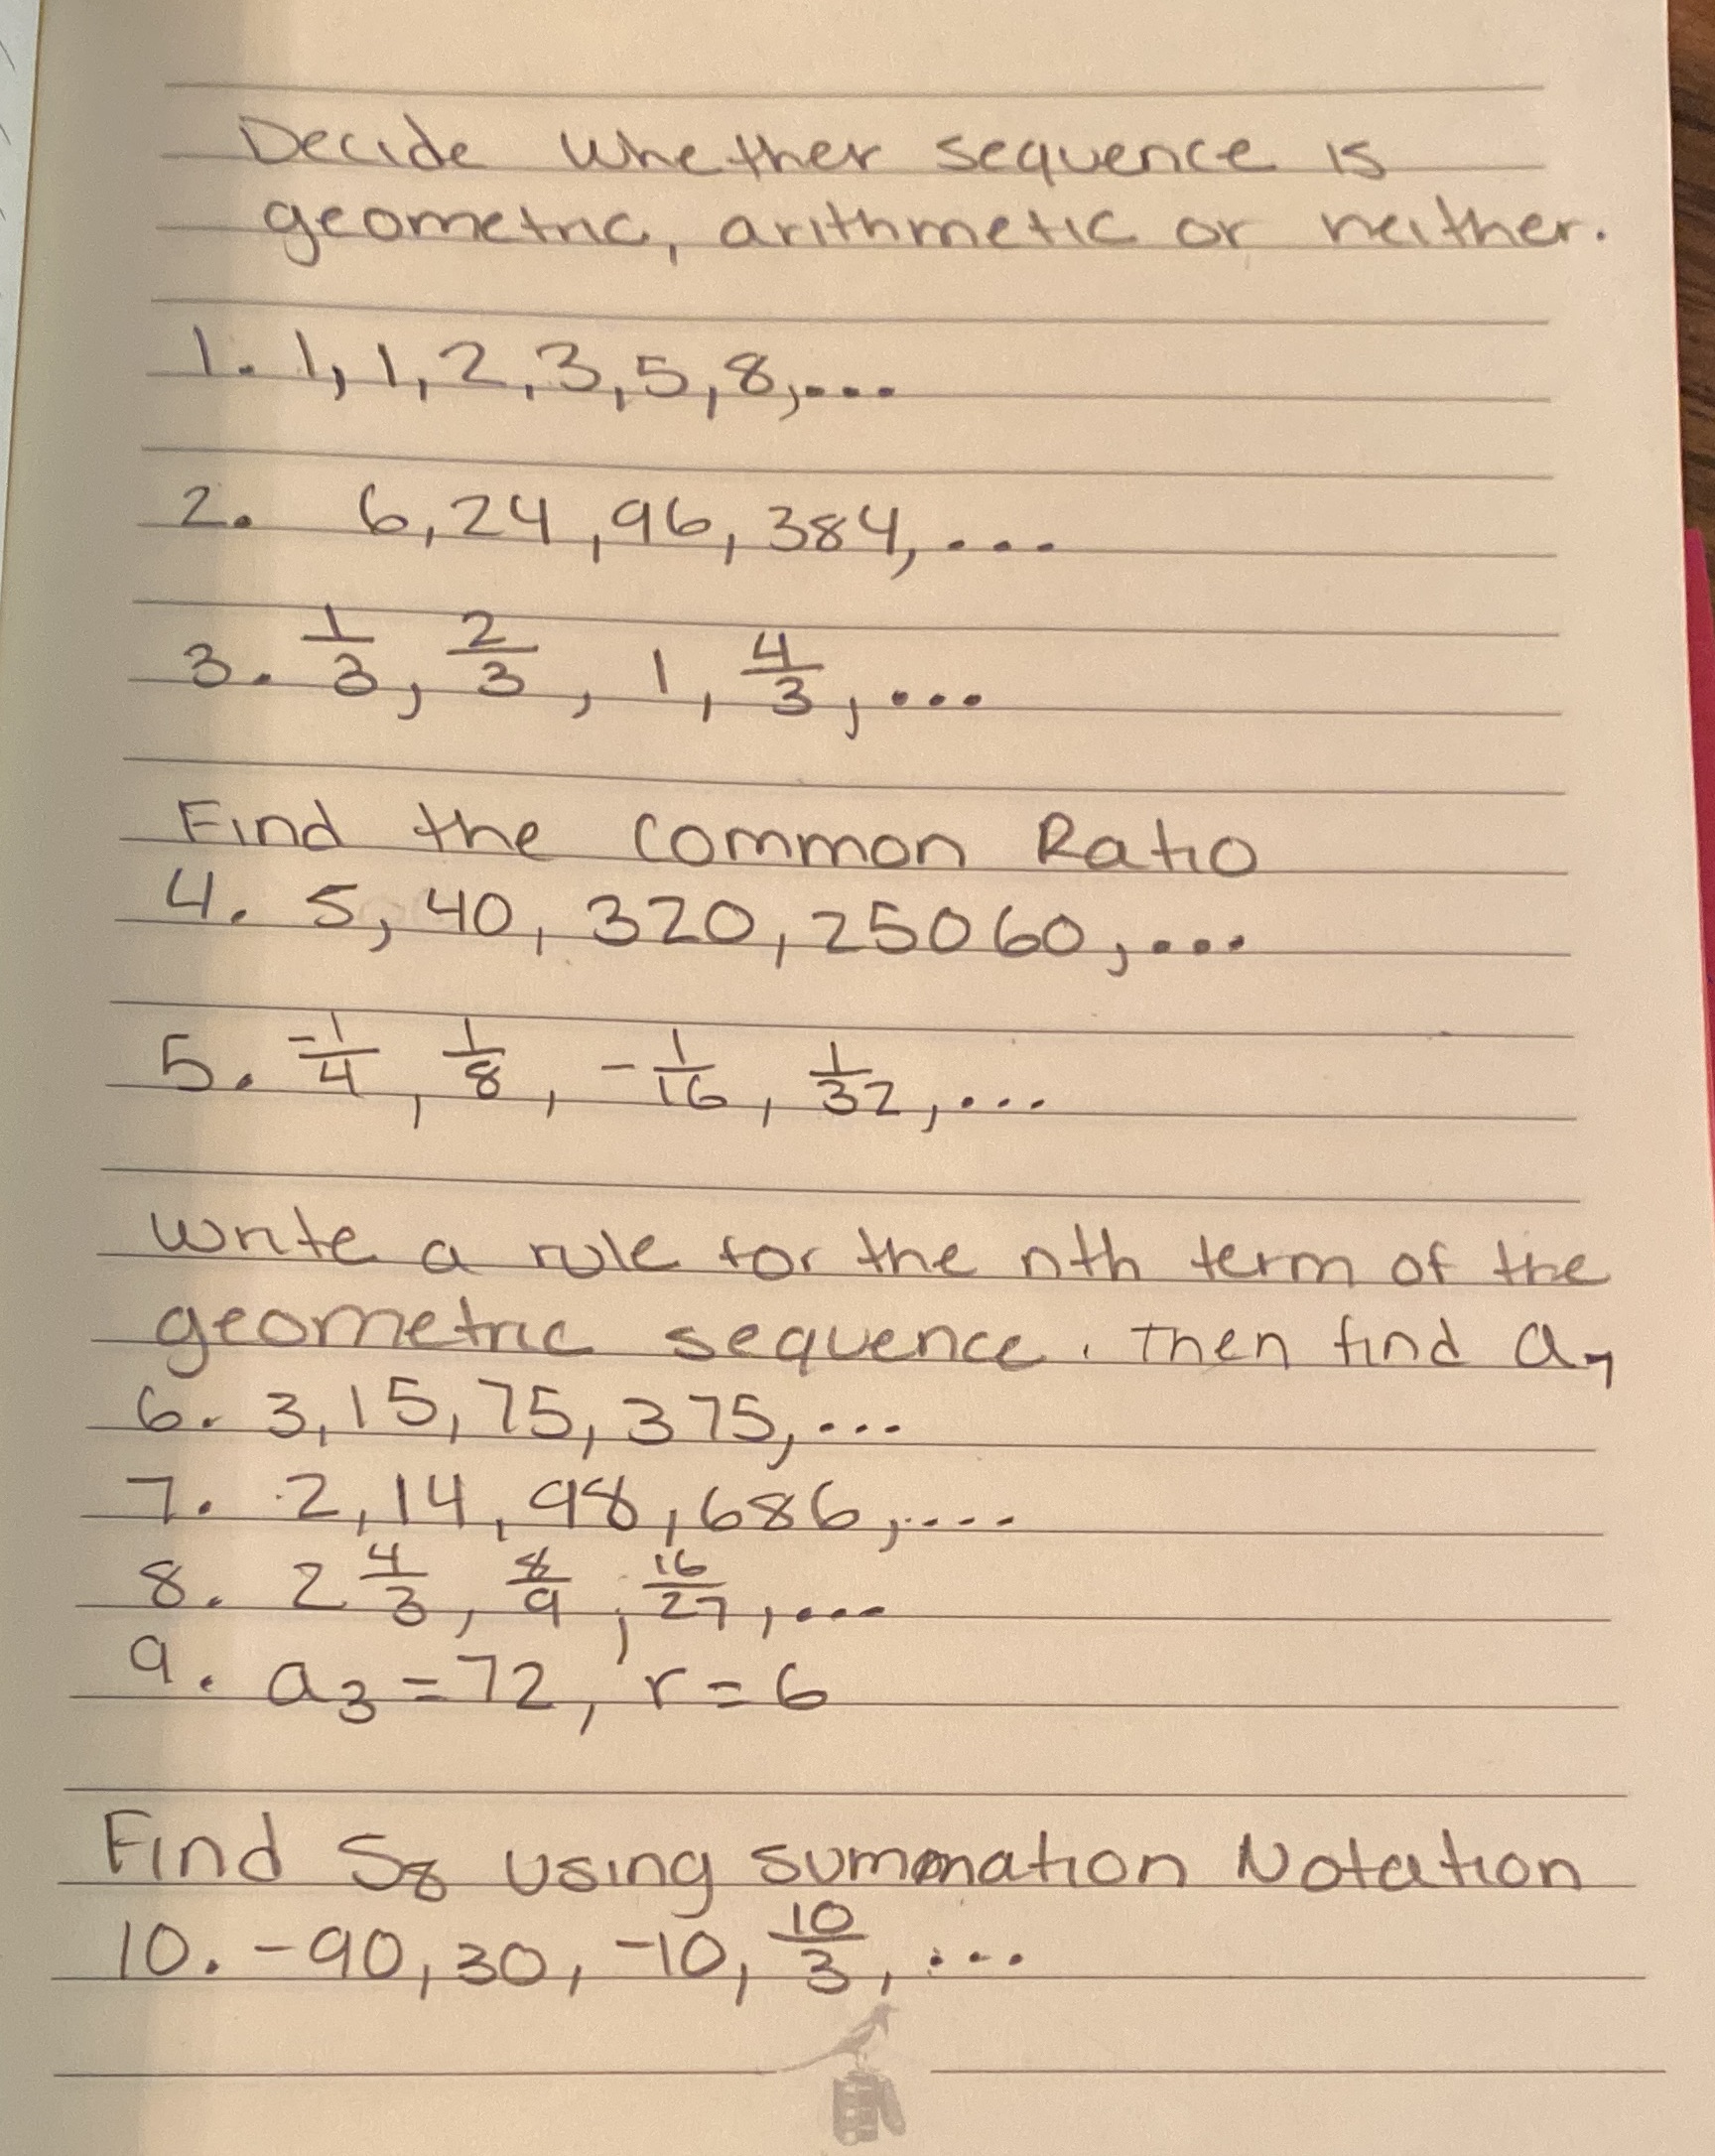 Decide whether sequence is
geometric, arithmetic or neither.
1. 1, 1, 2, 3, 5, 8, ...
2. 6, 24, 96, 384, ...
3. 1/3, 2/3, 1, 4/3, ...
Find the Common Ratio
4. 5, 40, 320, 25060, ...
5. -1/4, 1/8, -1/16, 1/32, ...
Write a rule for the nth term of the
geometric sequence. Then find a₇
6. 3, 15, 75, 375, ...
7. 2, 14, 98, 686, ....
8. 2 4/3, 8/9, 16/27, ...
9. a₃ = 72, r = 6
Find S₈ using summation Notation
10. -90, 30, -10, 10/3, ...